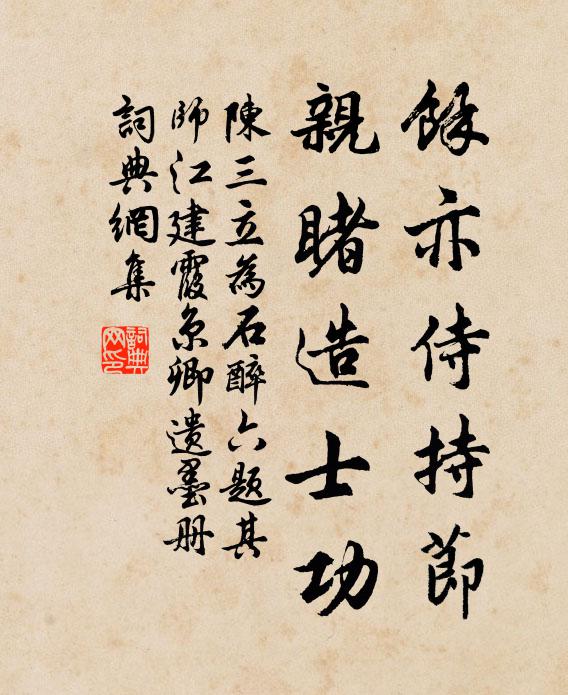 餘亦侍持節
親睹造士功
陳三立為石醉六題其
師江建霞京卿遺墨册
詞典網集
詞典網印